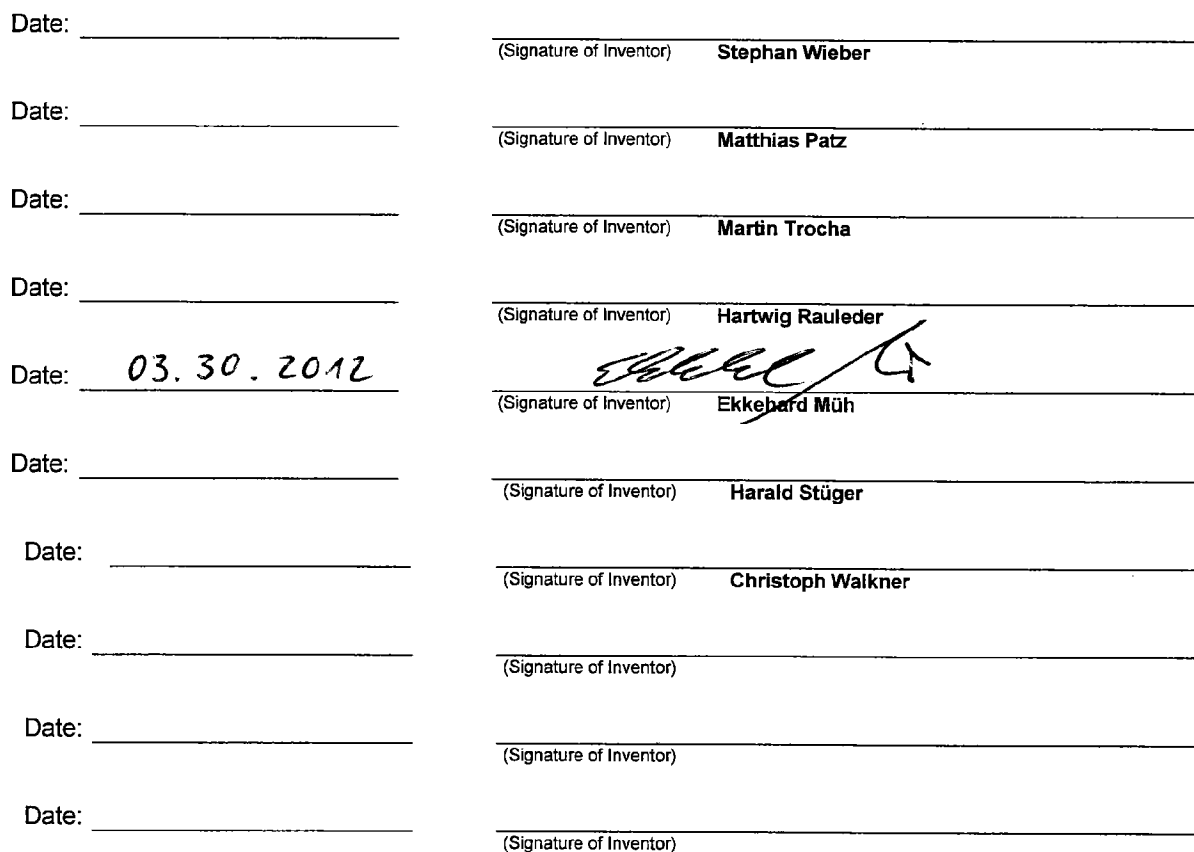 Date:
(Signature of Inventor) Stephan Wieber
Date:
(Signature of Inventor) Matthias Patz
Date:
(Signature of Inventor) Martin Trocha
Date:
(Signature of Inventor) Hartwig Rauleder
Date: 03.30.2012
(Signature of Inventor) Ekkehard Müh
Date:
(Signature of Inventor) Harald Stüger
Date:
(Signature of Inventor) Christoph Walkner
Date:
(Signature of Inventor)
Date:
(Signature of Inventor)
Date:
(Signature of Inventor)